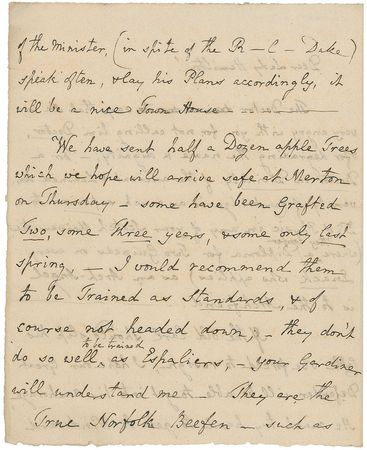 of the Minister, (in spite of the R – l – Duke)
speak often, & lay his Plans accordingly, it
will be a nice Town House –
We have sent half a Dozen apple Trees
which we hope will arrive safe at Merton
on Thursday – some have been Grafted
Two, some Three years, & some only last
spring – I would recommend them
to be Trained as Standards, & of
course not headed down, – they don't
do so well to be trained as Espaliers, – your Gardiner
will understand me – They are the
True Norfolk Beefen – such as